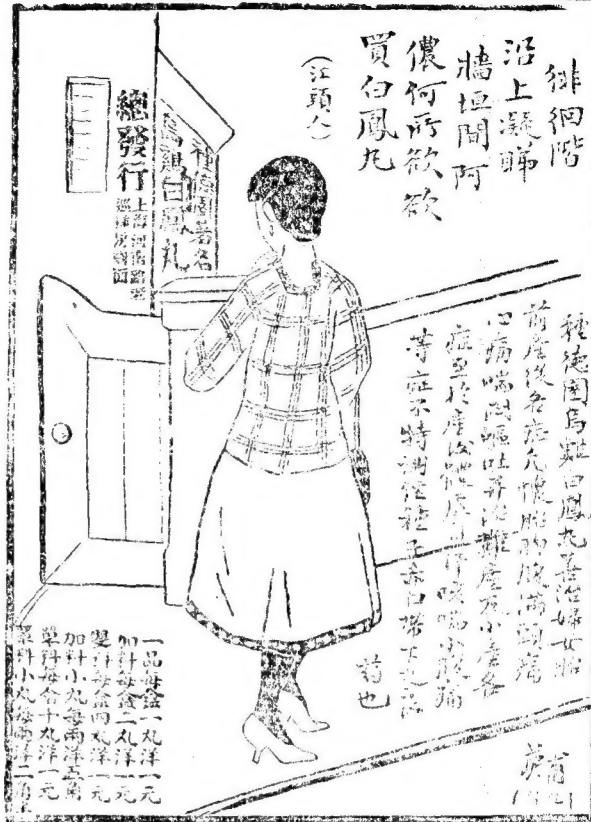 徘徊階
沿上凝睇
牆垣間阿
儂何所欲欲
買白鳳丸
(江頭人)
種德園著名
烏鷄白鳳丸
總發行
上海河南路
種德園烏雞白鳳丸善治婦女胎
前產後各症凡懷胎胸腹滿頭
心痛喘悶嘔吐 難產及小產各
症至於產後 咳喘小腹痛
等症不特調經種子 白帶
一品每盒一丸洋一元
加料每盒二丸洋一元
雙料每盒四丸洋一元
加料小丸每兩洋五角
單料每合十丸洋一元
單料小丸每兩洋二角